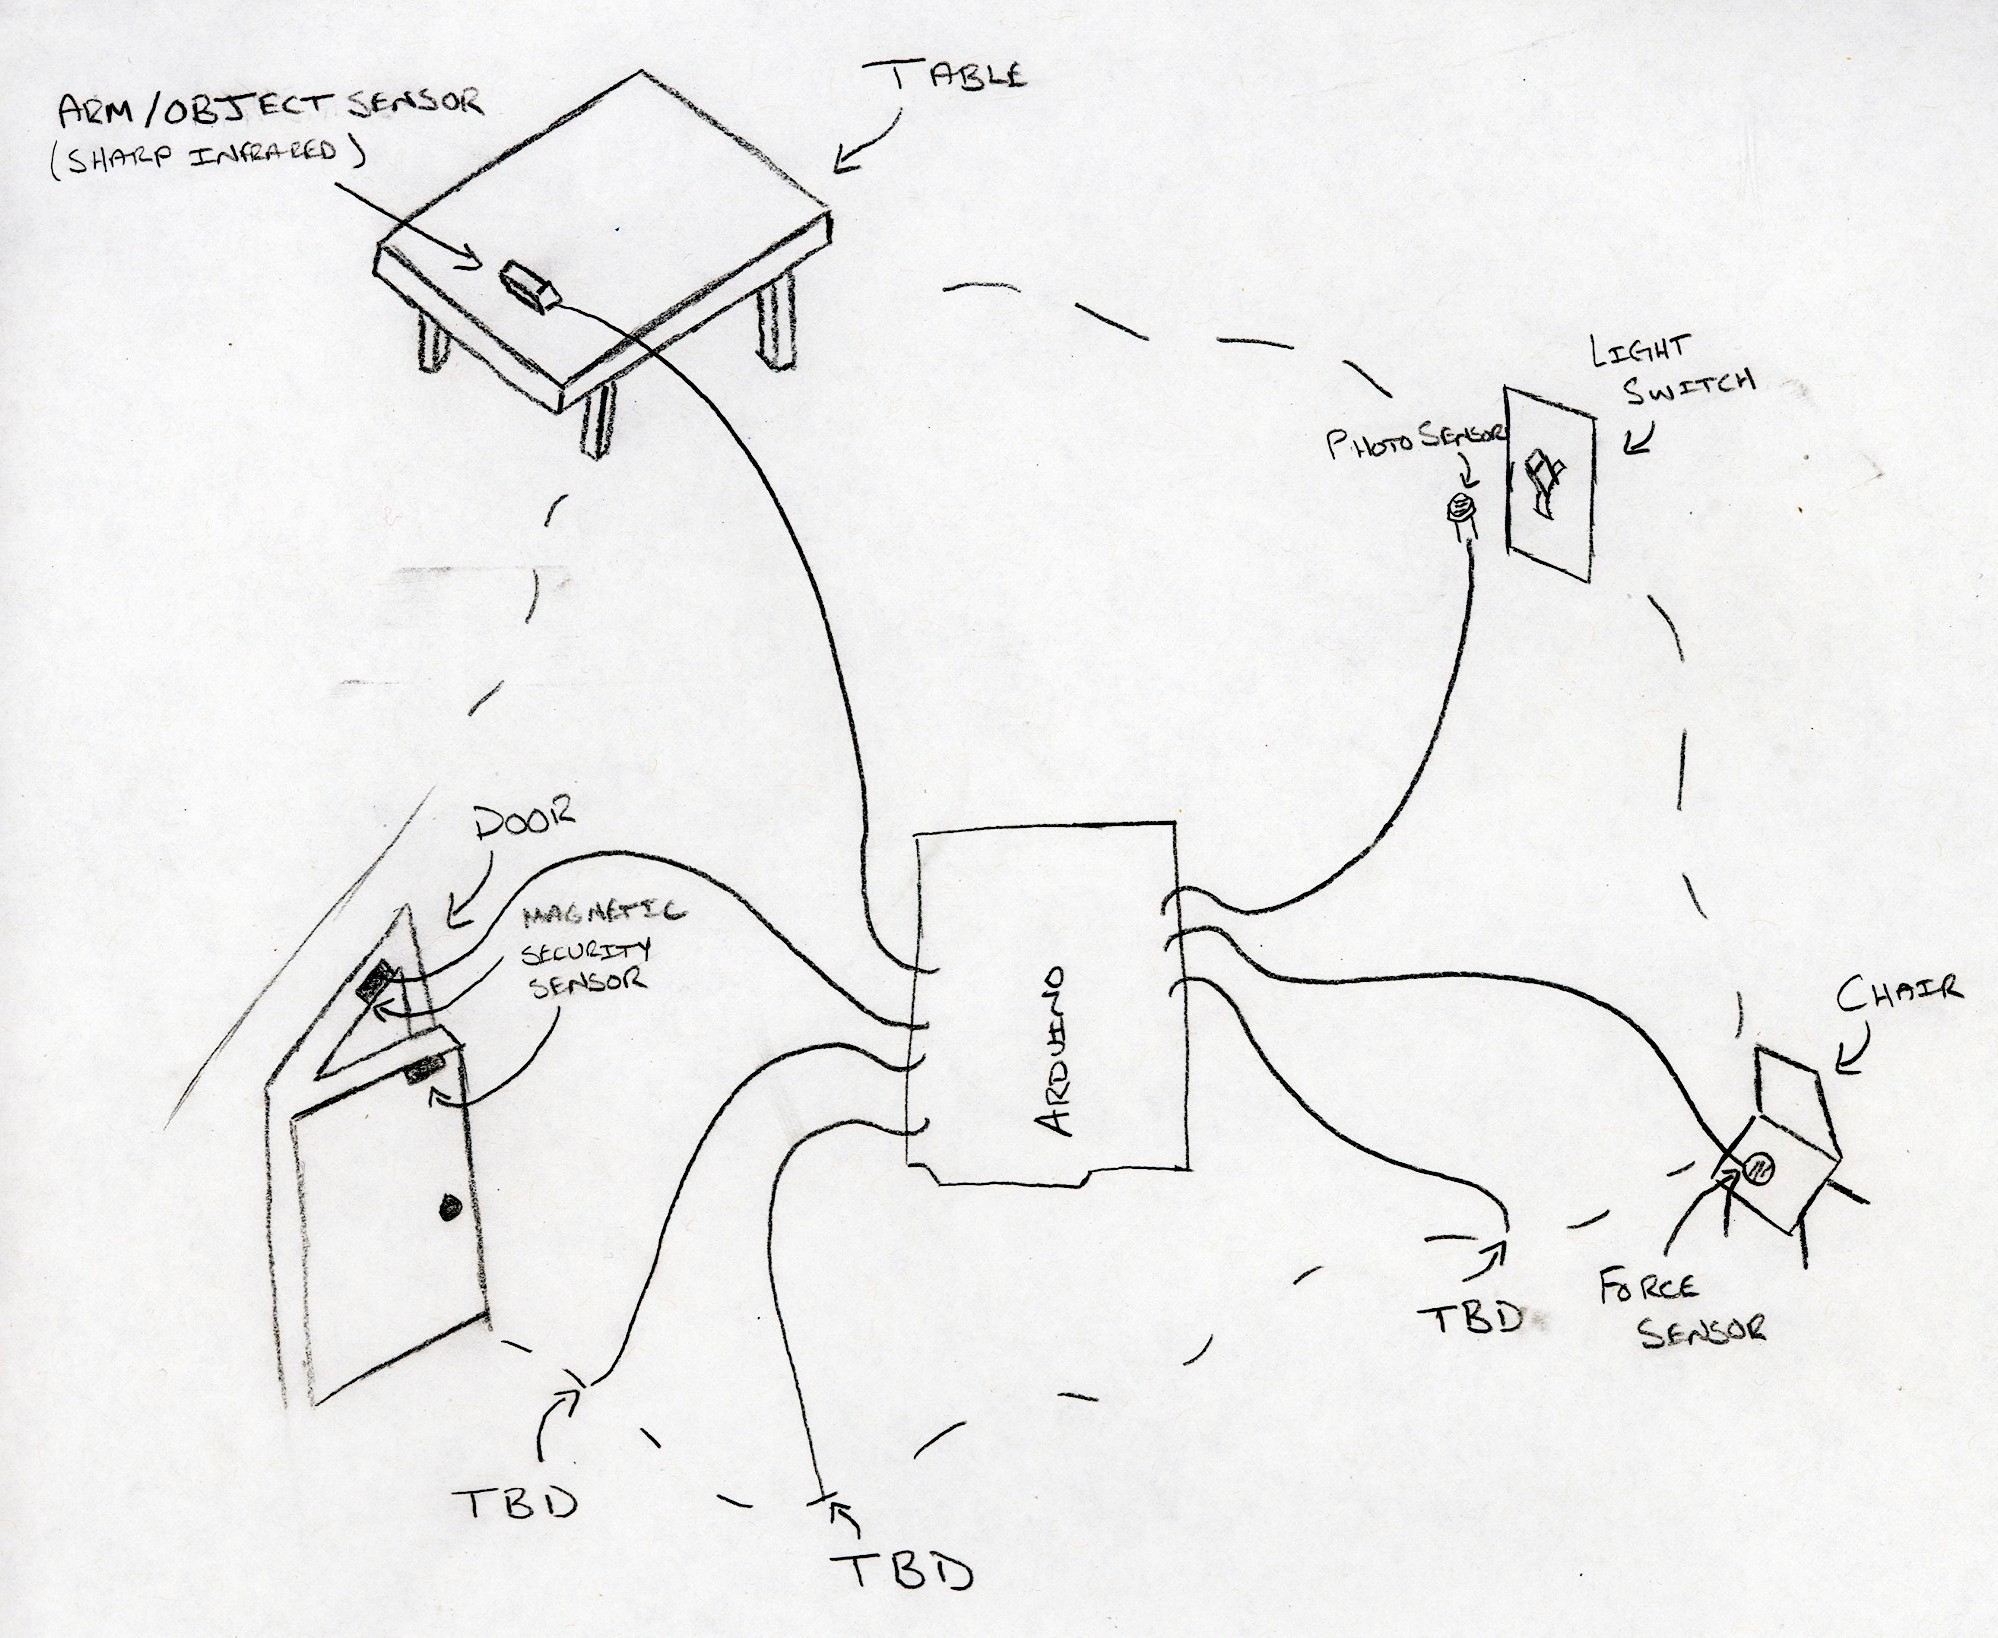 TABLE
ARM/OBJECT SENSOR
(SHARP INFRARED)
LIGHT
SWITCH
PHOTOSENSOR
DOOR
MAGNETIC
SECURITY
SENSOR
ARDUINO
CHAIR
FORCE
SENSOR
TBD
TBD
TBD